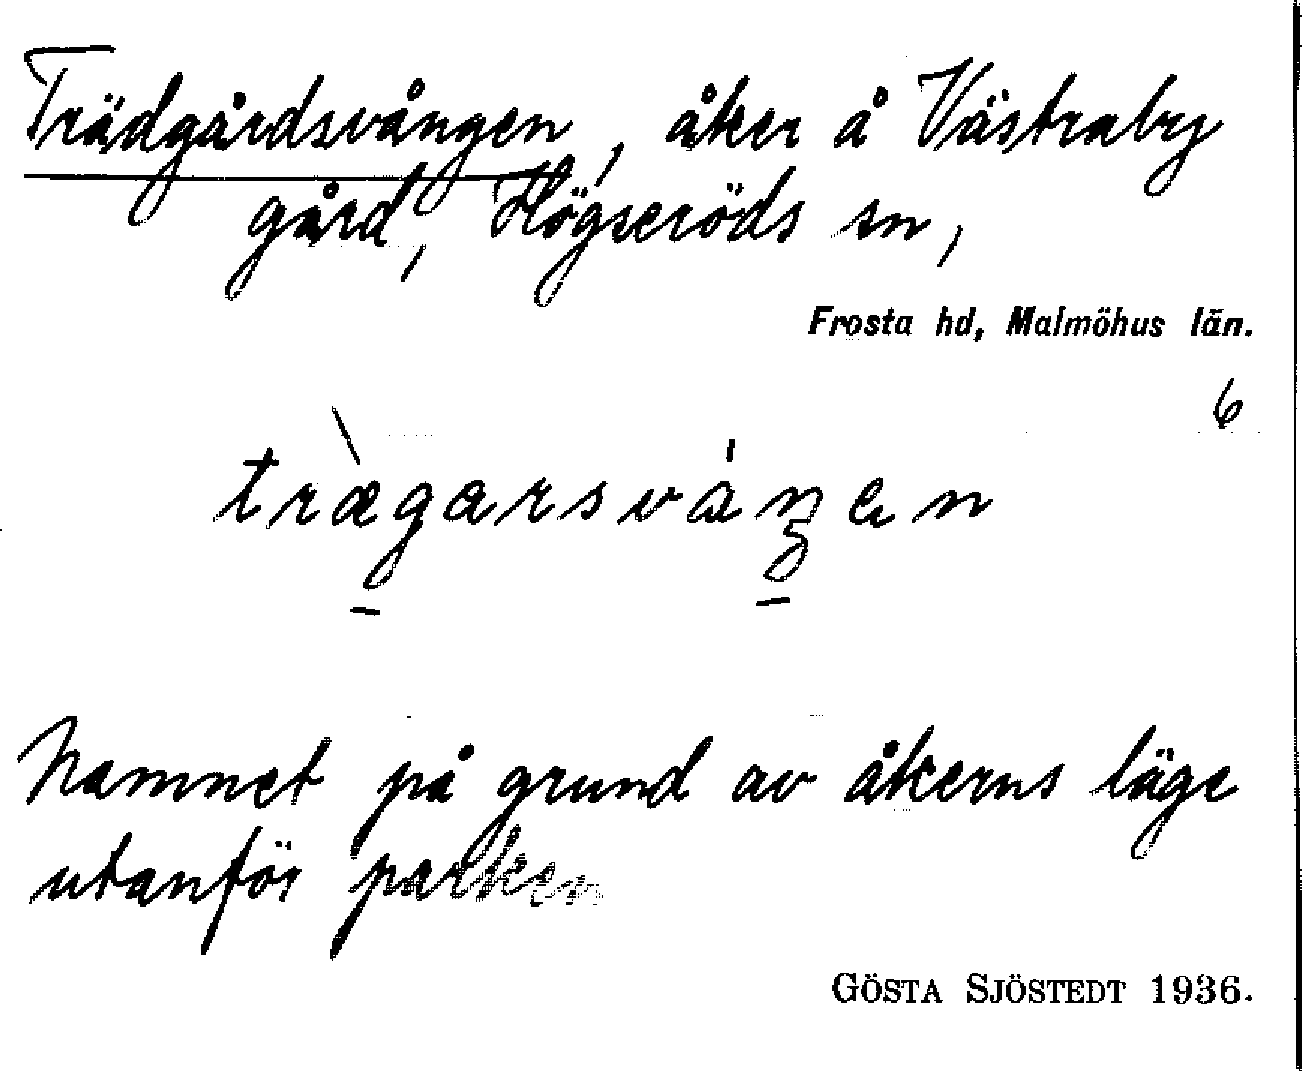 Trädgårdsvången, åker å Västraby
gård, Högseröds sn,
Frosta hd, Malmöhus län.
6
trægarsváŋen
Namnet på grund av åkerns läge
utanför parken
GÖSTA SJÖSTEDT 1936.